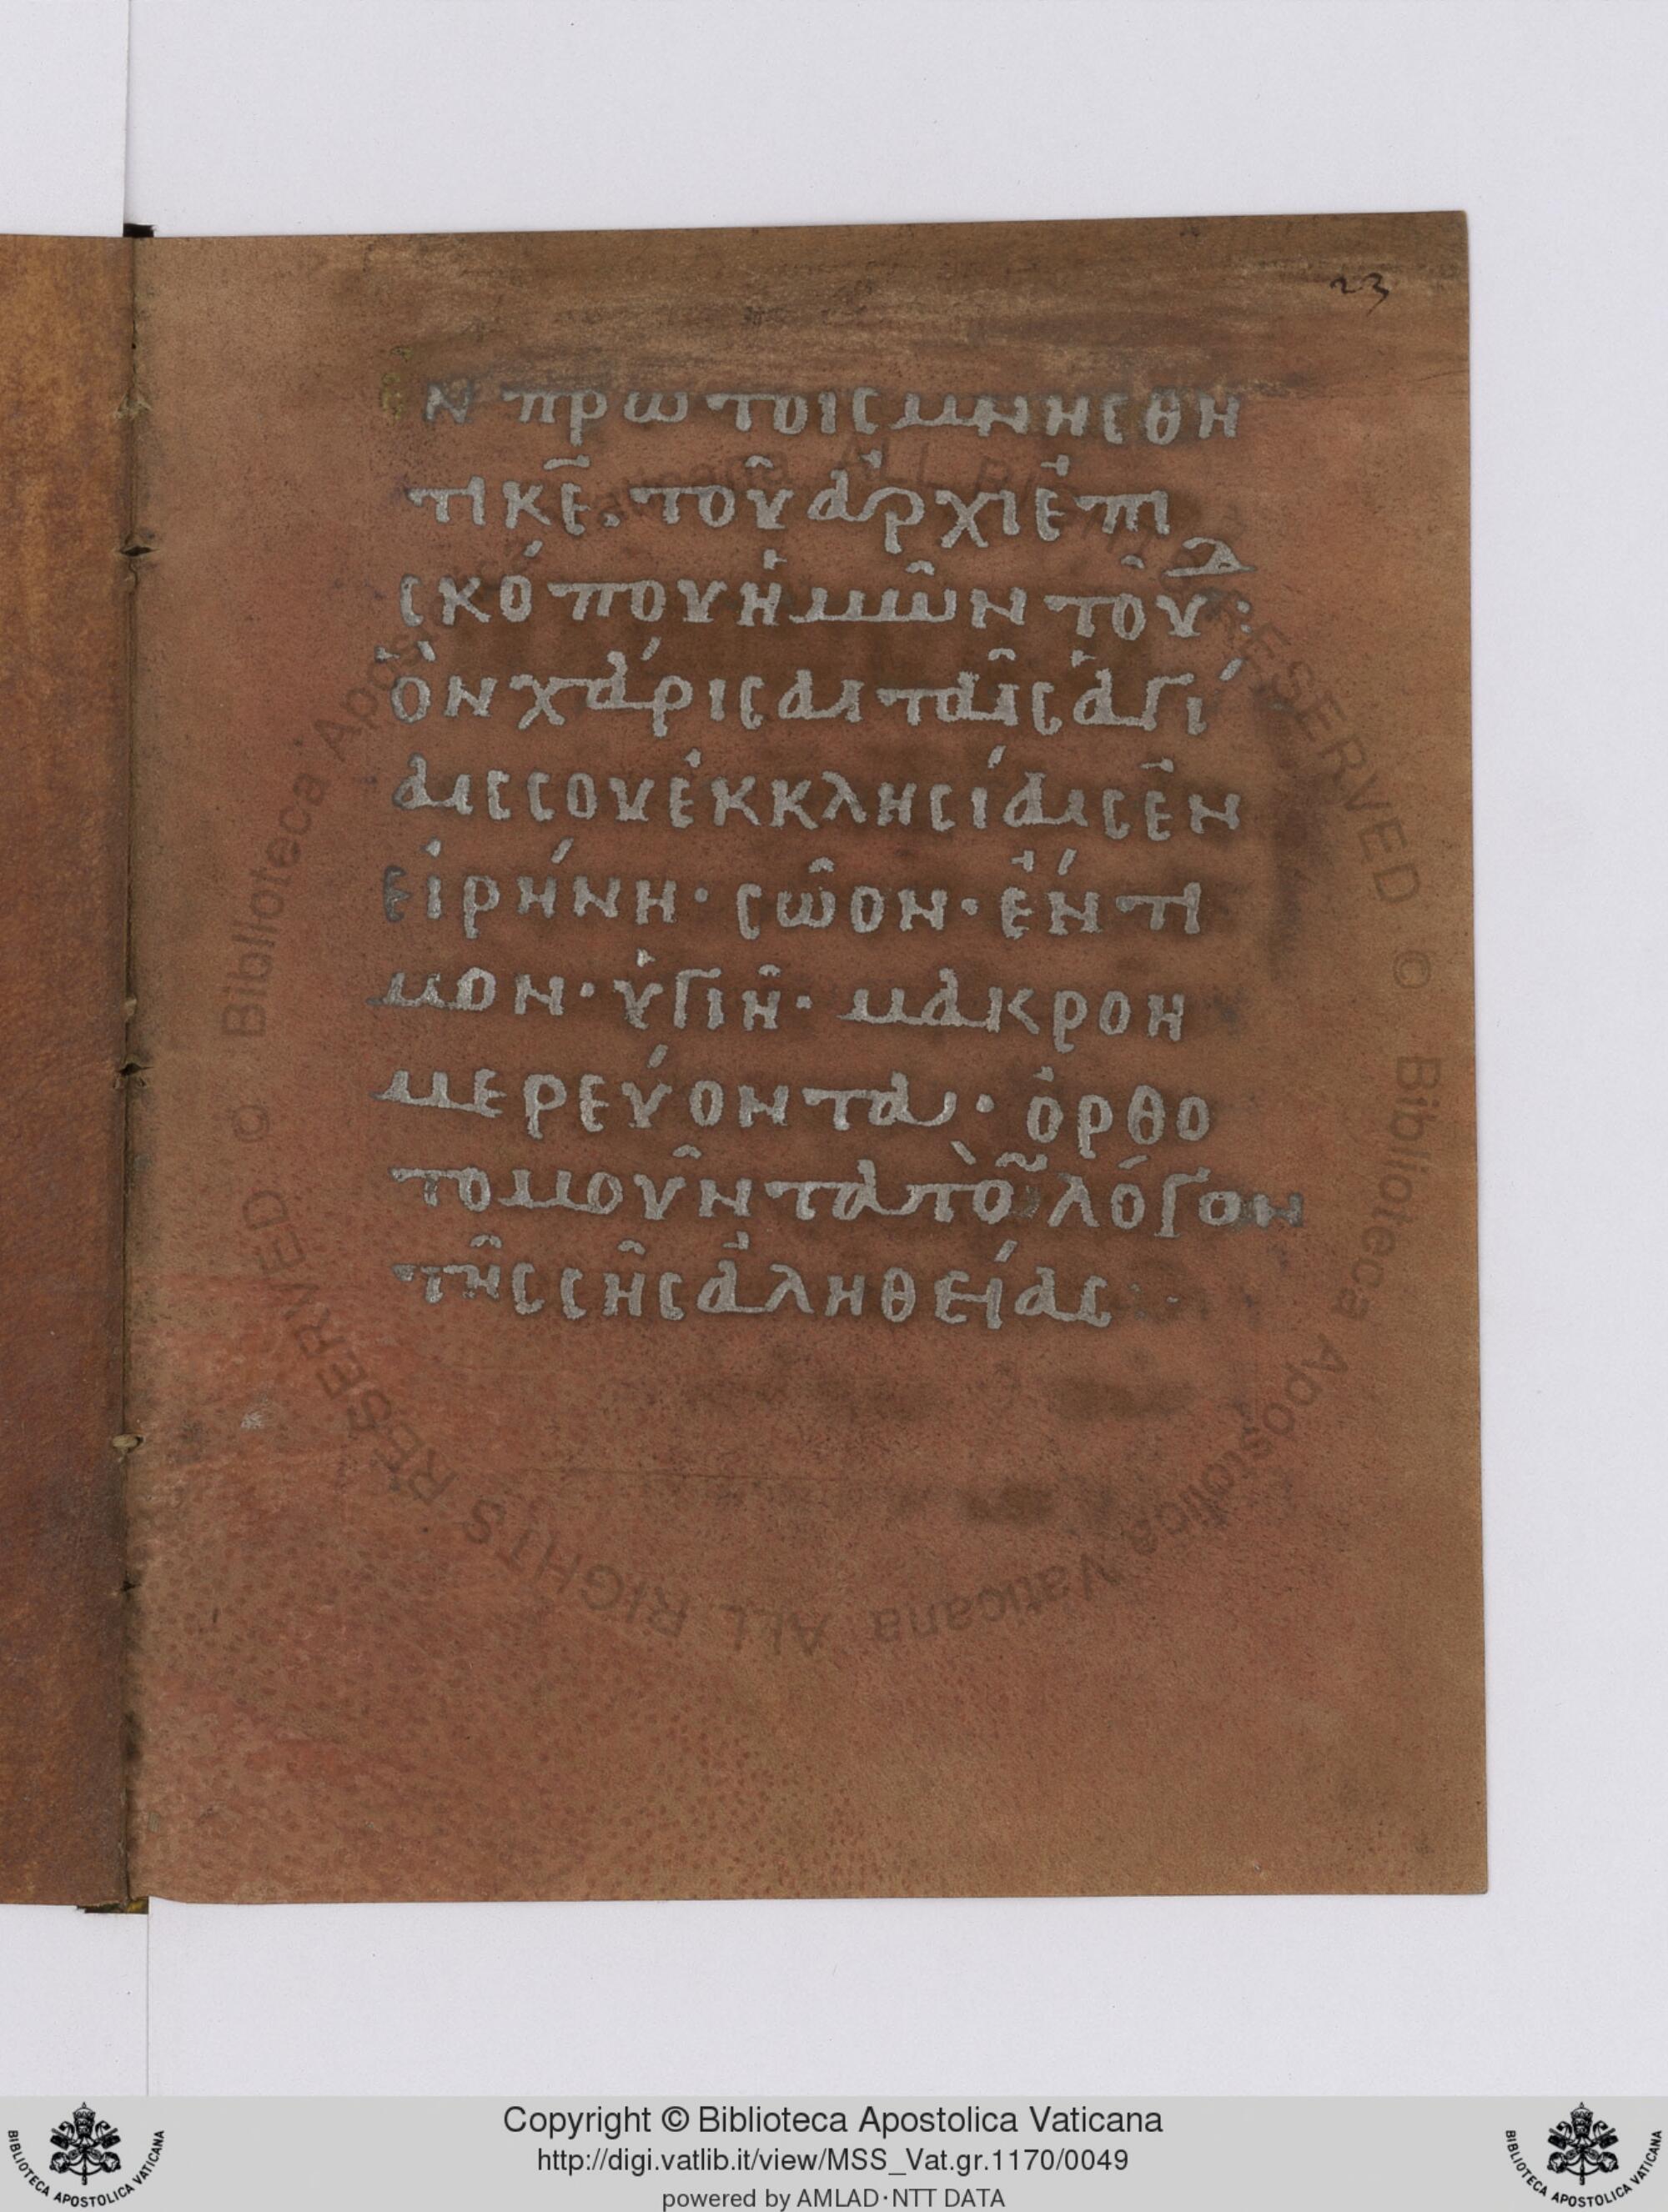 23
Ν πρώτοις μνήσθη
τι κε̄. τοῦ ἀρχιεπι
σκόπου ἡμῶν τοῦ δ:
ὃν χάρισαι ταῖς ἁγί
αις σου ἐκκλησίαις ἐν
εἰρήνη· σῶον· ἔντι
μον· ὑγιῆ· μακροη
μερεύοντα· ὀρθο
τομοῦντα τὸ λόγον
τῆς σῆς ἀληθείας·
© Biblioteca Apostolica Vaticana ALL RIGHTS RESERVED © Biblioteca Apostolica Vaticana ALL RIGHTS RESERVED
Copyright © Biblioteca Apostolica Vaticana
http://digi.vatlib.it/view/MSS_Vat.gr.1170/0049
powered by AMLAD·NTT DATA
BIBLIOTECA APOSTOLICA VATICANA
BIBLIOTECA APOSTOLICA VATICANA